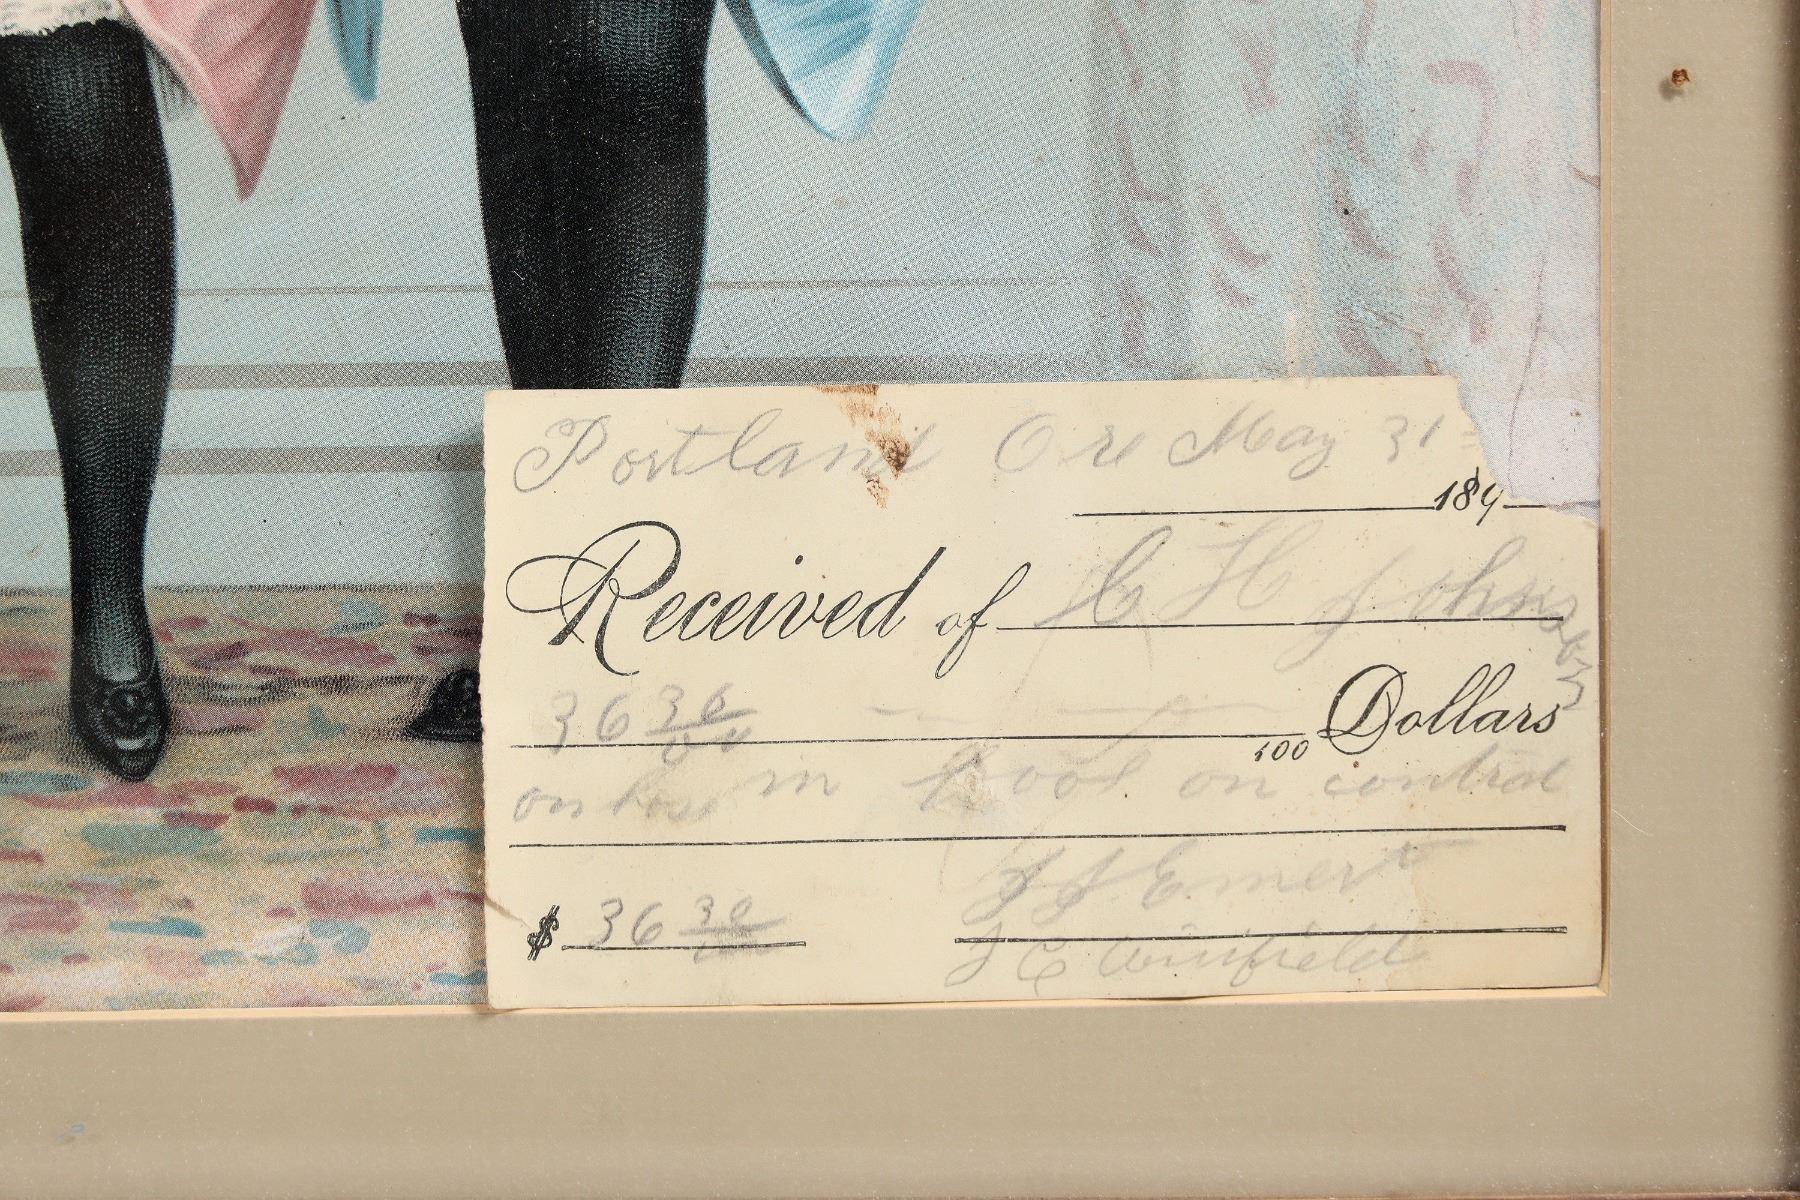 Portland Ore May 31
189
Received of C H Johnson
36 36/00 100 Dollars
on in on
$ 36 30/100 J J Emert
J C Winifield